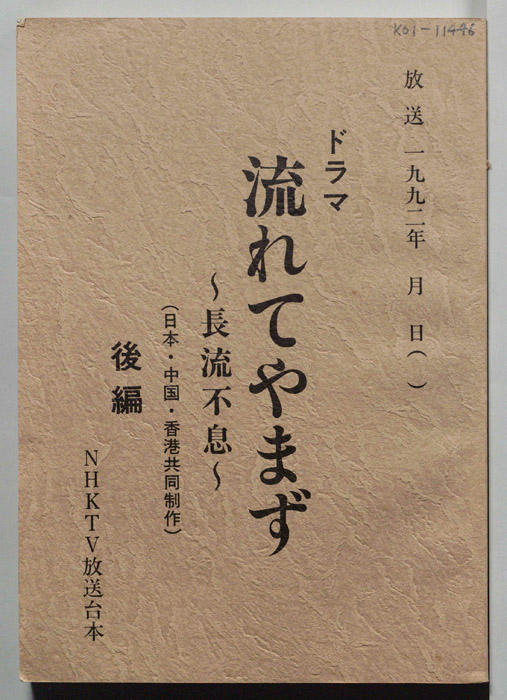 K01-11446
放送 一九九二年 月 日( )
ドラマ
流れてやまず
～長流不息～
(日本・中国・香港共同制作)
後編
NHKTV放送台本